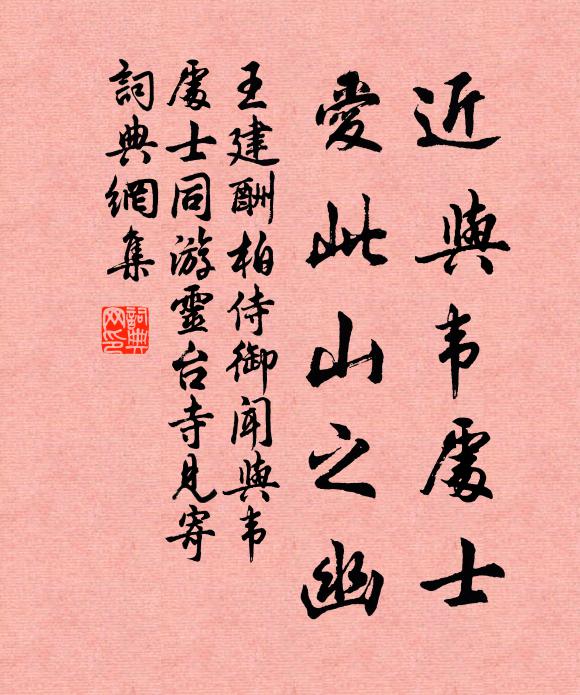 近與韦處士
愛此山之幽
王建酬柏侍御闻與韦
處士同游靈台寺見寄
詞典網集
詞典
网印